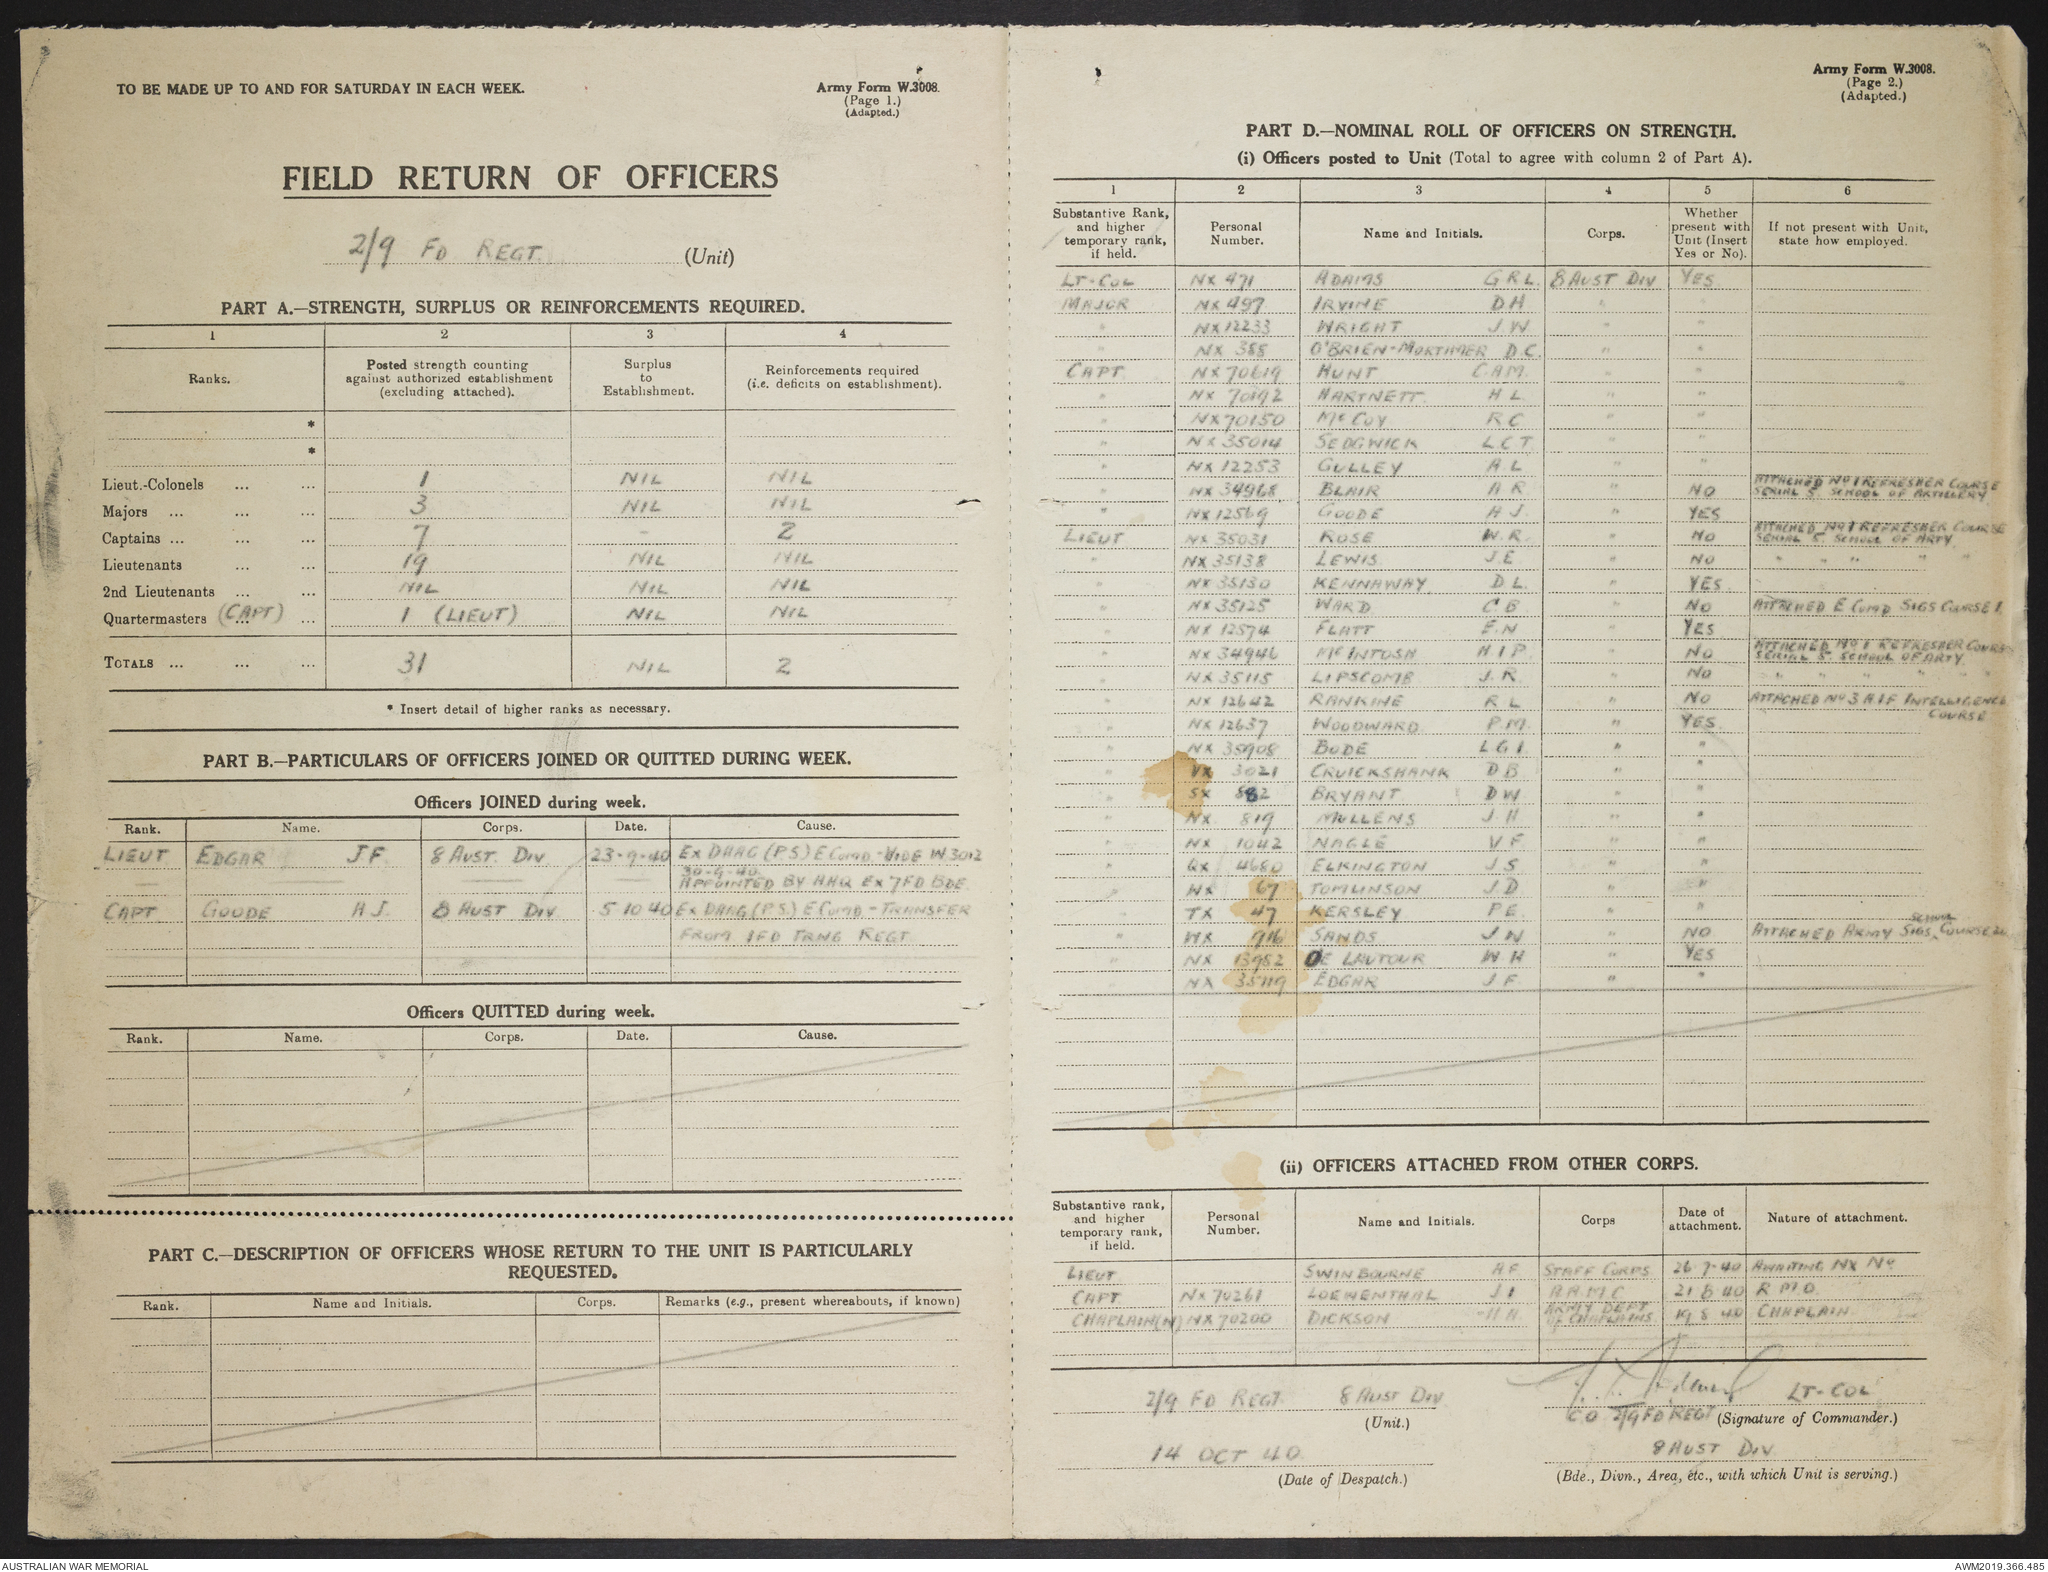 TO BE MADE UP TO AND FOR SATURDAY IN EACH WEEK.
Army Form W.3008.
(Page 1.)
(Adapted.)
FIELD RETURN OF OFFICERS
2/9 FD REGT (Unit)
PART A.—STRENGTH, SURPLUS OR REINFORCEMENTS REQUIRED.
1 2 3 4
Ranks. Posted strength counting against authorized establishment (excluding attached). Surplus to Establishment. Reinforcements required (i.e. deficits on establishment).
*
*
Lieut.-Colonels ... ... 1 NIL NIL
Majors ... ... ... 3 NIL NIL
Captains ... ... ... 7 - 2
Lieutenants ... ... 19 NIL NIL
2nd Lieutenants ... ... NIL NIL NIL
Quartermasters (CAPT) ... ... 1 (LIEUT) NIL NIL
TOTALS ... ... ... 31 NIL 2
* Insert detail of higher ranks as necessary.
PART B.—PARTICULARS OF OFFICERS JOINED OR QUITTED DURING WEEK.
Officers JOINED during week.
Rank. Name. Corps. Date. Cause.
LIEUT EDGAR J.F. 8 AUST. DIV 23-9-40 EX DAAG (P.S) E COMD - VIDE W 3012
30-9-40
— — — — APPOINTED BY AHQ EX 7 FD BDE
CAPT GOODE H J. 8 AUST DIV 5 10 40 EX DAAG (P.S.) E COMD - TRANSFER
FROM 1 FD TRNG REGT
Officers QUITTED during week.
Rank. Name. Corps. Date. Cause.
PART C.—DESCRIPTION OF OFFICERS WHOSE RETURN TO THE UNIT IS PARTICULARLY
REQUESTED.
Rank. Name and Initials. Corps. Remarks (e.g., present whereabouts, if known)
Army Form W.3008.
(Page 2.)
(Adapted.)
PART D.—NOMINAL ROLL OF OFFICERS ON STRENGTH.
(i) Officers posted to Unit (Total to agree with column 2 of Part A).
1 2 3 4 5 6
Substantive Rank, and higher temporary rank, if held. Personal Number. Name and Initials. Corps. Whether present with Unit (Insert Yes or No). If not present with Unit, state how employed.
LT-COL NX 471 ADAMS G R L. 8 AUST DIV YES
MAJOR NX 497 IRVINE D H " "
" NX 12233 WRIGHT J.W " "
" NX 355 O'BRIEN-MORTIMER D.C. " "
CAPT NX 70619 HUNT C.A.M. " "
" NX 70192 HARTNETT H L " "
" NX 70150 McCOY R C " "
" NX 35014 SEDGWICK L.C T " "
" NX 12253 GULLEY A.L " "
" NX 34968 BLAIR A R " NO ATTACHED No 1 REFRESHER COURSE
SERIAL 5. SCHOOL OF ARTILLERY
" NX 12569 GOODE H J. " YES
LIEUT NX 35031 ROSE W.R. " NO ATTACHED No 1 REFRESHER COURSE
SERIAL 5. SCHOOL OF ARTY
" NX 35138 LEWIS J.E. " NO " " " "
" NX 35130 KENNAWAY D L. " YES
" NX 35125 WARD C B " NO ATTACHED E COMD SIGS COURSE 1
" NX 12574 FLATT E.N " YES
" NX 34946 McINTOSH H I P. " NO ATTACHED No 1 REFRESHER COURSE
SERIAL 5. SCHOOL OF ARTY
" NX 35115 LIPSCOMB J.R. " NO " " " "
" NX 12642 RANKINE R L " NO ATTACHED No 3 A I F INTELLIGENCE
COURSE
" NX 12637 WOODWARD P.M. " YES
" NX 35908 BODE L G I. " "
" VX 3021 CRUICKSHANK D B " "
" SX 882 BRYANT D W " "
" NX 819 MULLENS J H " "
" NX 1042 NAGLE V F " "
" QX 4680 ELKINGTON J S " "
" WX 67 TOMLINSON J.D " "
" TX 47 KERSLEY P E. " "
" WX 716 SANDS J W " NO ATTACHED ARMY SIGS SCHOOL COURSE
" NX 13982 DE LAUTOUR W H " YES
" NX 35119 EDGAR J F. " "
(ii) OFFICERS ATTACHED FROM OTHER CORPS.
Substantive rank, and higher temporary rank, if held. Personal Number. Name and Initials. Corps Date of attachment. Nature of attachment.
LIEUT SWINBOURNE A F STAFF CORPS 26-7-40 AWAITING NX No
CAPT NX 70261 LOEWENTHAL J I A.A.M.C 21 8 40 R M O.
CHAPLAIN NX 70200 DICKSON H H. ARMY DEPT OF CHAPLAINS 19 8 40 CHAPLAIN
2/9 FD REGT 8 AUST DIV
(Unit.)
LT-COL
C.O 2/9 FD REGT (Signature of Commander.)
14 OCT 40
(Date of Despatch.)
8 AUST DIV
(Bde., Divn., Area, etc., with which Unit is serving.)
AUSTRALIAN WAR MEMORIAL
AWM2019.366.485